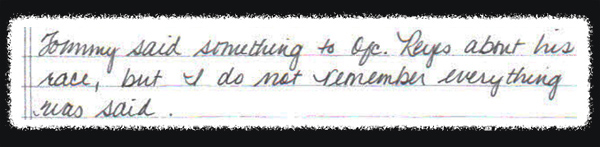 Tommy said something to Ofc. Reyes about his
race, but I do not remember everything
was said.